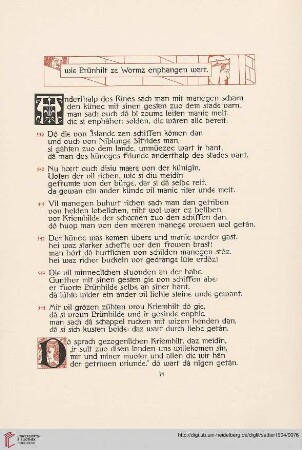 wie Brünhilt ze Wormz enphangen wart.
Anderthalp des Rînes sach man mit manegen scharn
den künec mit sînen gesten zuo dem stade varn.
man sach ouch dâ bî zoume leiten manic meit.
die si enphâhen solden, die wâren alle bereit.
Dô die von Îslande zen schiffen kômen dan
und ouch von Niblunge Sîfrides man,
si gâhten zuo dem lande, unmüezec wart ir hant,
dâ man des küneges friunde anderthalp des stades vant.
Nu hœrt ouch disiu mære von der künigîn,
Uoten der vil rîchen, wie si diu meidîn
gefrumte von der bürge, dar si dâ selbe reit.
dâ gewan ein ander künde vil manic riter unde meit.
Vil manegen buhurt rîchen sach man dan getriben
von helden lobelîchen, niht wol wær ez beliben,
vor Kriemhilde der schœnen zuo den schiffen dan.
dô huop man von den mœren manege vrowen wol getân.
Der künec was komen übere und manic werder gast.
hei waz starker schefte vor den frouwen brast!
man hôrt dâ hurtlîchen von schilden manegen stôz.
hei waz rîcher buckeln vor gedrange lûte erdôz!
Die vil minneclîchen stuonden an der habe.
Gunthêr mit sînen gesten gie von schiffen abe:
er fuorte Brünhilde selbe an sîner hant.
dâ lûhte wider ein ander vil liehte steine unde gewant.
Mit vil grôzen zühten vrou Kriemhilt dô gie,
dâ si vroun Brünhilde und ir gesinde enphie.
man sach dâ schappel rucken mit wîzen henden dan,
dâ si sich kusten beide: daz wart durch liebe getân.
Dô sprach gezogenlîchen Kriemhilt, daz meidîn,
ir sult zuo disen landen uns willekomen sîn,
mir und mîner muoter und allen die wir hân
der getriuwen vriunde.' dô wart dâ nîgen getân.
http://digi.ub.uni-heidelberg.de/diglit/sattler1904/0076